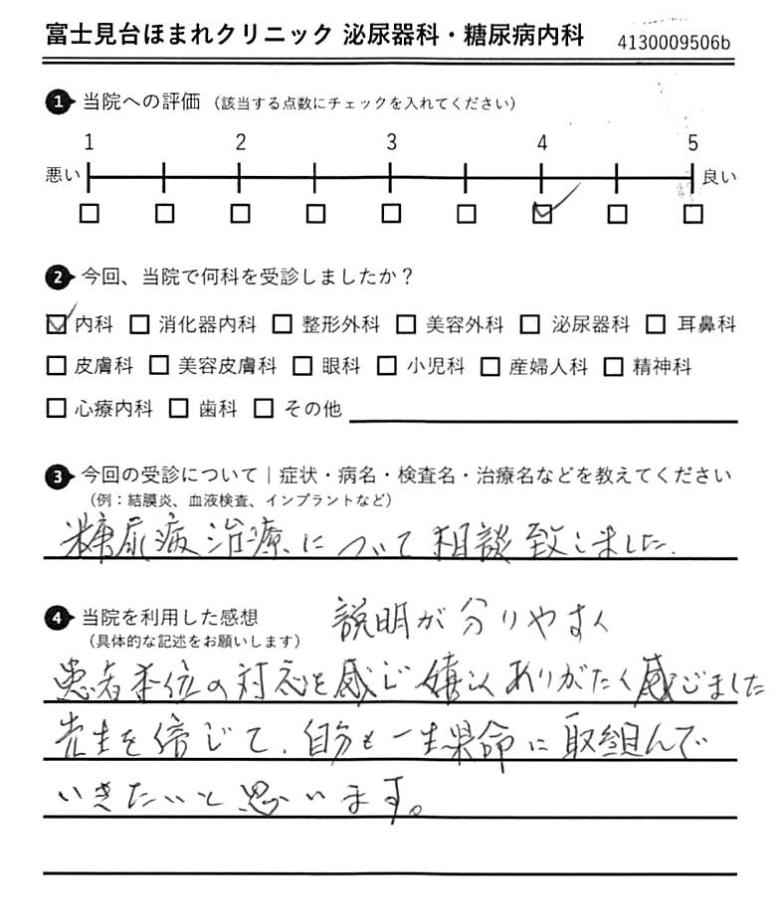 富士見台ほまれクリニック 泌尿器科・糖尿病内科 4130009506b
1 当院への評価（該当する点数にチェックを入れてください）
1 2 3 4 5
悪い 良い
2 今回、当院で何科を受診しましたか？
☑ 内科 □ 消化器内科 □ 整形外科 □ 美容外科 □ 泌尿器科 □ 耳鼻科
□ 皮膚科 □ 美容皮膚科 □ 眼科 □ 小児科 □ 産婦人科 □ 精神科
□ 心療内科 □ 歯科 □ その他
3 今回の受診について｜症状・病名・検査名・治療名などを教えてください
（例：結膜炎、血液検査、インプラントなど）
糖尿病治療について相談致しました.
4 当院を利用した感想 説明が分りやすく
（具体的な記述をお願いします）
患者本位の対応を感じ嬉しくありがたく感じました
先生を信じて、自分も一生果命に取組んで
いきたいと思います。